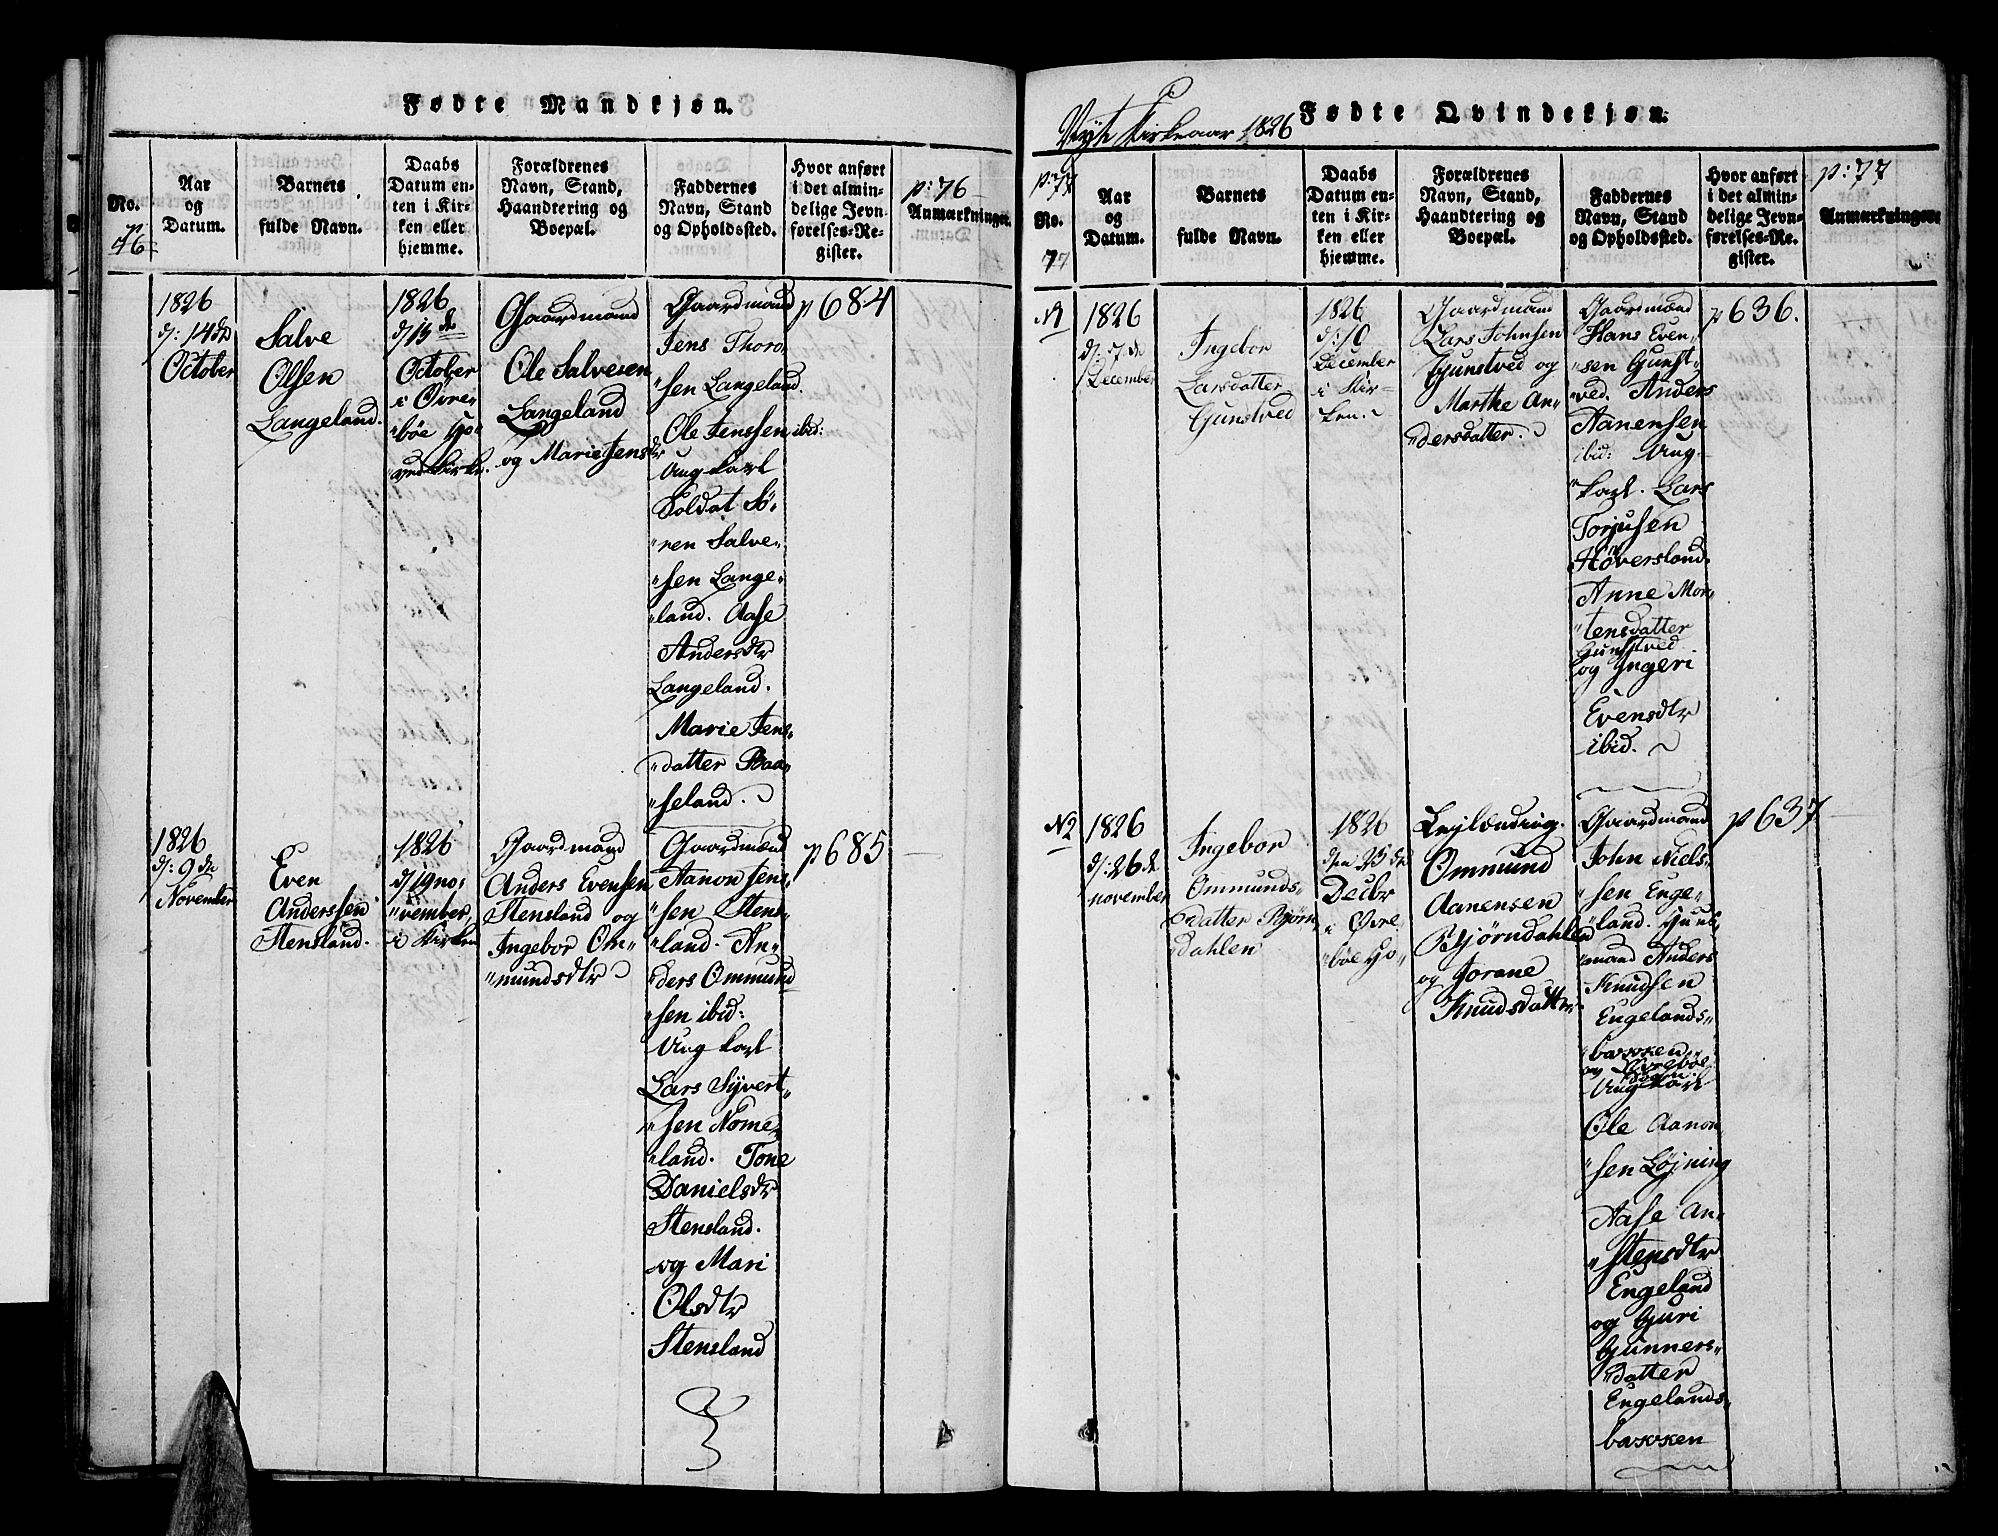 Fødte Mandkjøn.
No.
p 76
Aar
og
Datum.
Barnets
fulde Navn.
Daabs
Datum en-
ten i Kir-
ken eller
hjemme.
Forældrenes
Navn, Stand,
Haandtering og
Boepæl.
Faddernes
Navn, Stand
og Opholdssted.
Hvor anført
i det almin-
delige Jevn-
førelses-Re-
gister.
p: 76
Anmærkninger.
1826
d: 14de
October
Salve
Olsen
Langeland.
1826
d/15de
October
i Øvre-
bøe Ho-
ved Kirke.
Gaardmand
Ole Salvesen
Langeland
og Marie Jensdtr
Gaardmænd
Jens Thor-
"sen Langeland.
Ole Jenssen ibid:
Ung karl
Soldat Sö-
"ren Salve-
"sen Lange-
"land. Aase
Andersdtr
Langeland.
Marie Jens-
"datter Baa-
"seland.
p 684
1826
d: 9de
November
Even
Anderssen
Stensland.
1826
d/19 no-
"vember,
i Kirken
Gaardmand
Anders Evensen
Stensland og
Ingebor Om-
"mundsdtr
Gaardmænd
Aanon Jens-
"sen Stens-
"land. An-
"ders Ommund-
"sen ibid:
Ung karl
Lars Syvert-
"sen Nome-
"land. Tone
Danielsdtr
Stensland.
og Mari
Olsdtr
Stensland
p 685
Nyt Kirkeaar 1826
Fødte Qvindekjøn.
p: 77
No.
77
Aar
og
Datum.
Barnets
fulde Navn.
Daabs
Datum en-
ten i Kir-
ken eller
hjemme.
Forældrenes
Navn, Stand,
Haandtering og
Boepæl.
Faddernes
Navn, Stand
og Opholdssted.
Hvor anført
i det almin-
delige Jevn-
førelses-Re-
gister.
p: 77
Anmærkninger.
N1
1826
d: 7de
December
Ingebor
Larsdatter
Gunstved
1826
d: 10
December
i Kir-
ken.
Gaardmand
Lars Johnsen
Gunstved og
Marthe An-
"dersdatter.
Gaardmænd
Hans Even-
"sen Gunst-
"ved. Anders
Aanensen
ibid: Ung-
"karl. Lars
Torjusen
Høversland.
Anne Mor-
"tensdatter
Gunstved
og Yngeri
Evensdtr
ibid.
p 636.
N2
1826
d: 26de
november
Ingebor
Ommunds-
"datter Bjørn
dahlen
1826
den 25de
Decbr
i Øvre-
"bøe Ho-
Lejlænding.
Ommund
Aanensen
Bjørndahlen
og Jorane
Knudsdatter
Gaardmand
John Niels-
"sen Enge-
"land. Huus-
"mand Anders
Knudsen
Engelands-
"bakken
og Øvrebøe
Sogn:
Ung karl
Ole Aanon-
"sen Løjning
Aase An-
"stensdtr
Engeland
og Guri
Gunners-
"datter
Engelands-
bakken
p 637